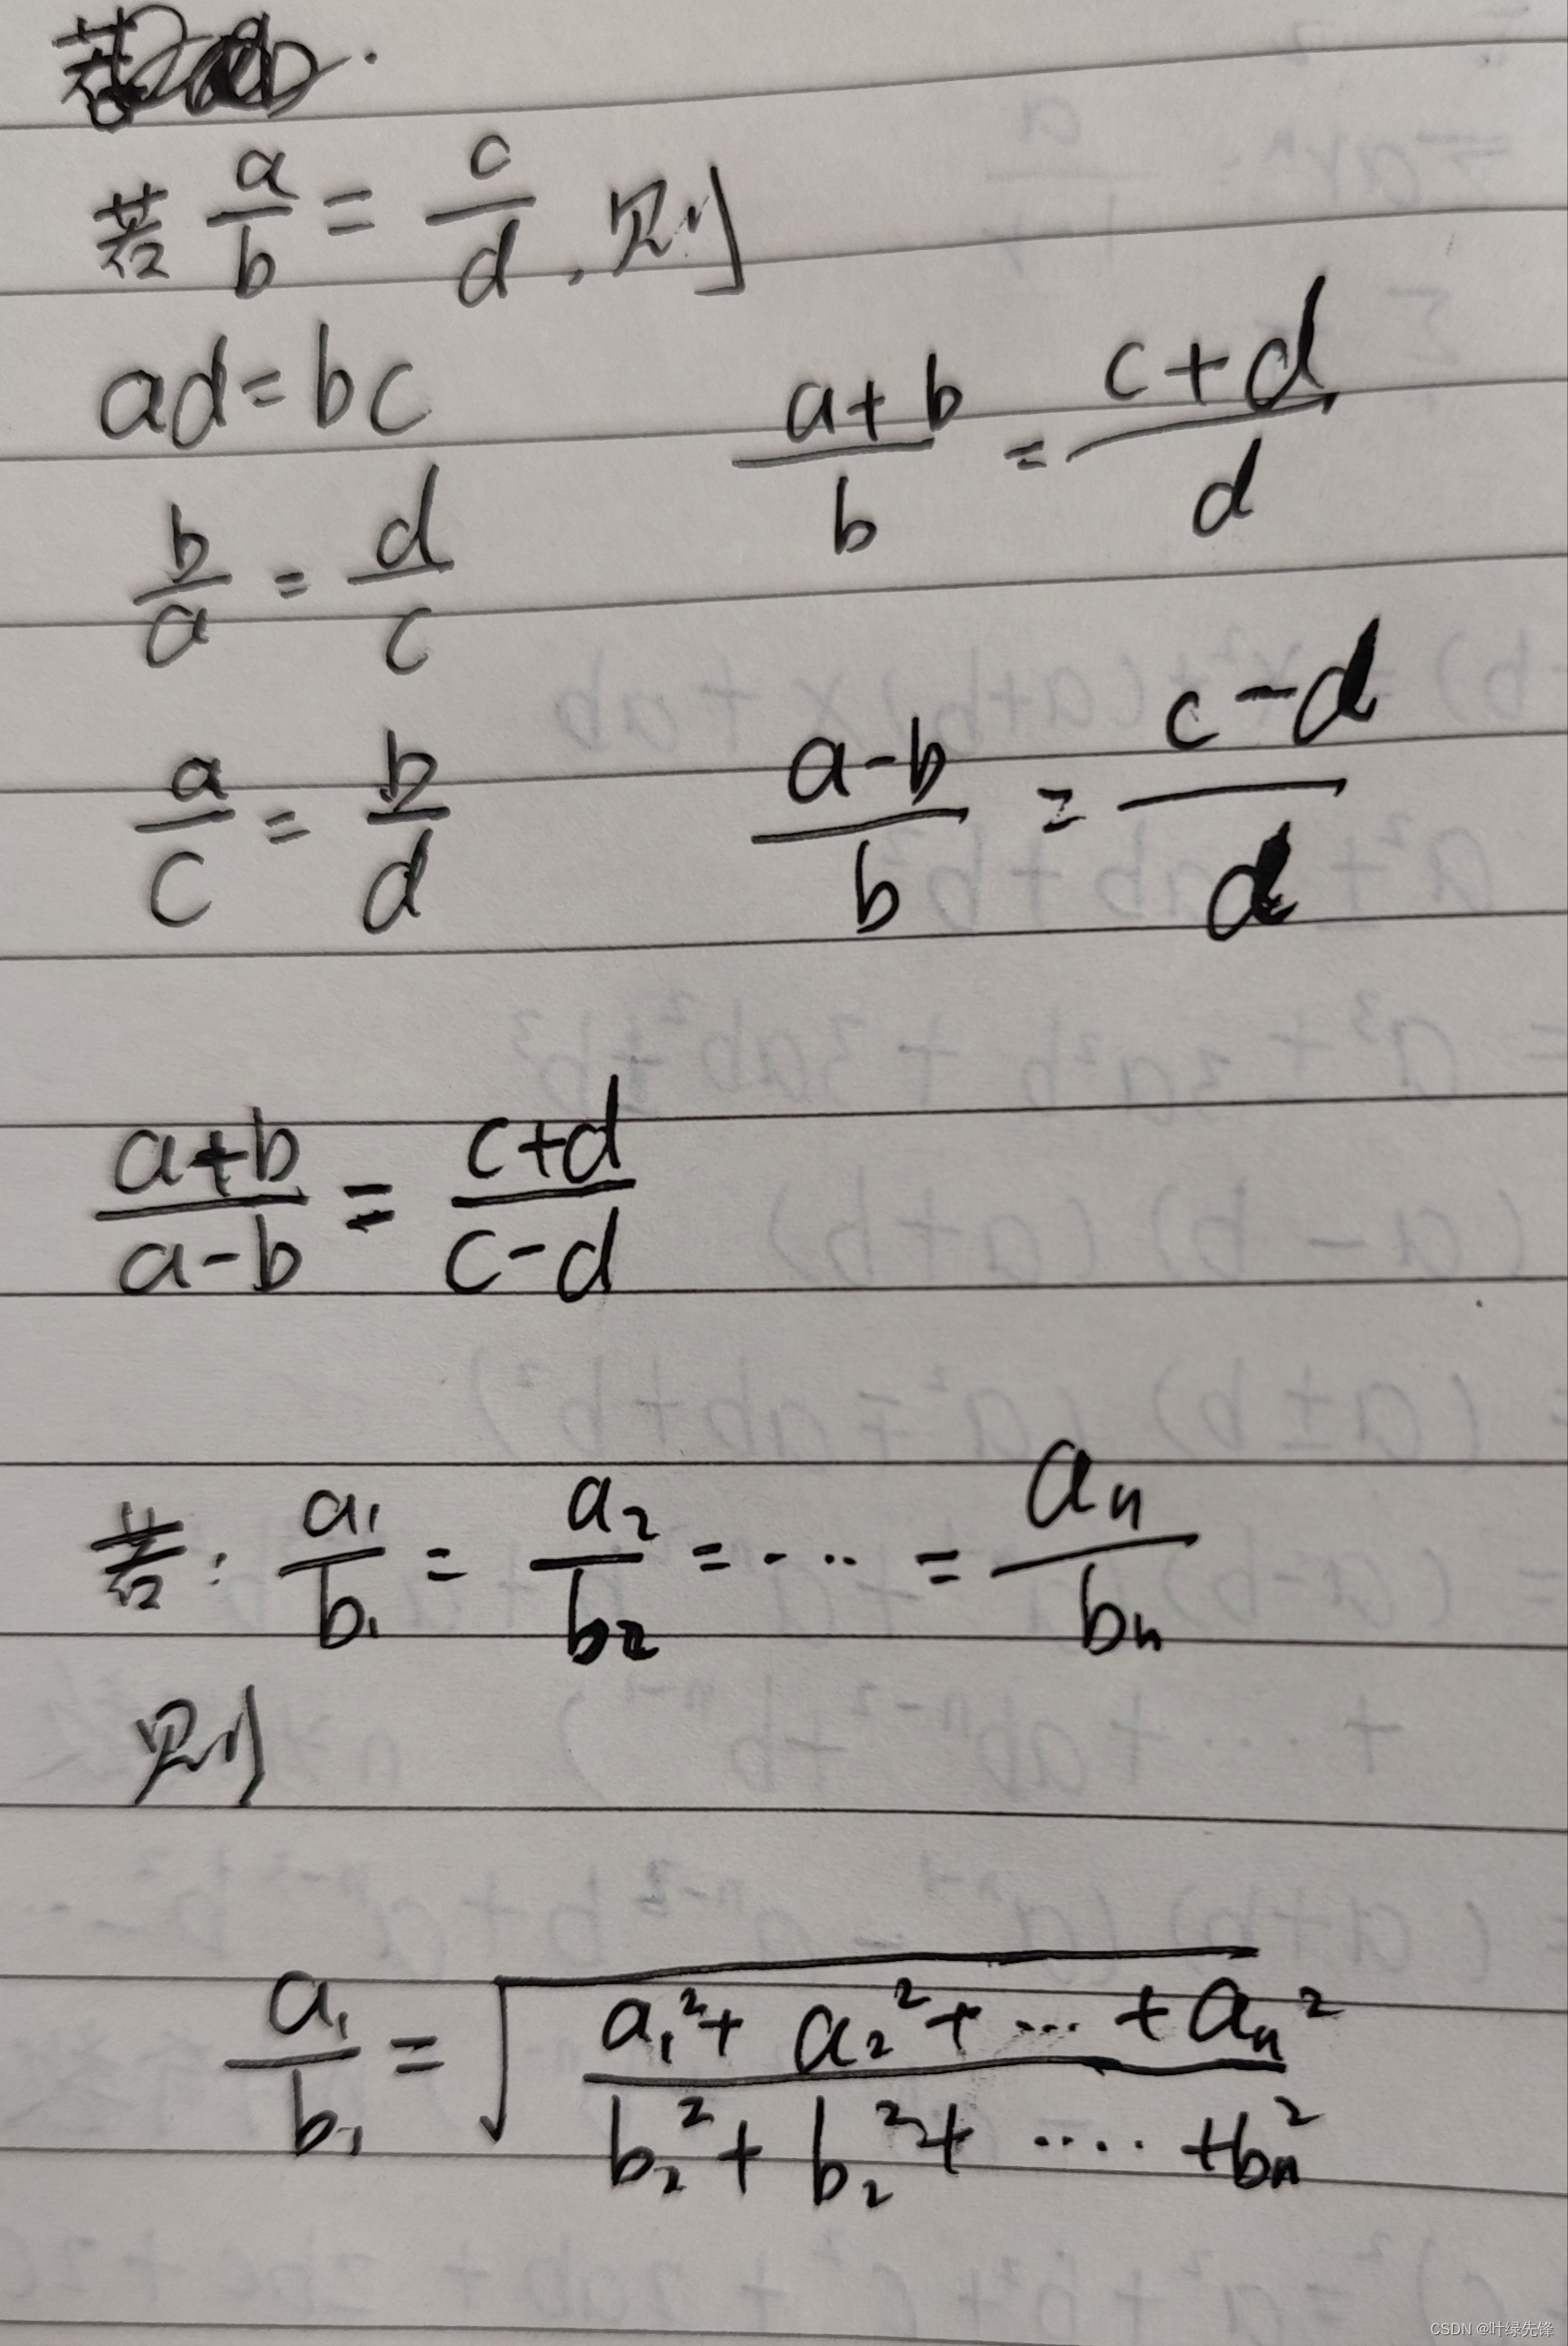 若
若 a/b = c/d, 则
ad = bc
(a+b)/b = (c+d)/d
b/a = d/c
a/c = b/d
(a-b)/b = (c-d)/d
(a+b)/(a-b) = (c+d)/(c-d)
若: a₁/b₁ = a₂/b₂ = ... = aₙ/bₙ
则
a₁/b₁ = √((a₁²+a₂²+...+aₙ²)/(b₂²+b₂²+....+bₙ²))
CSDN @叶绿先锋